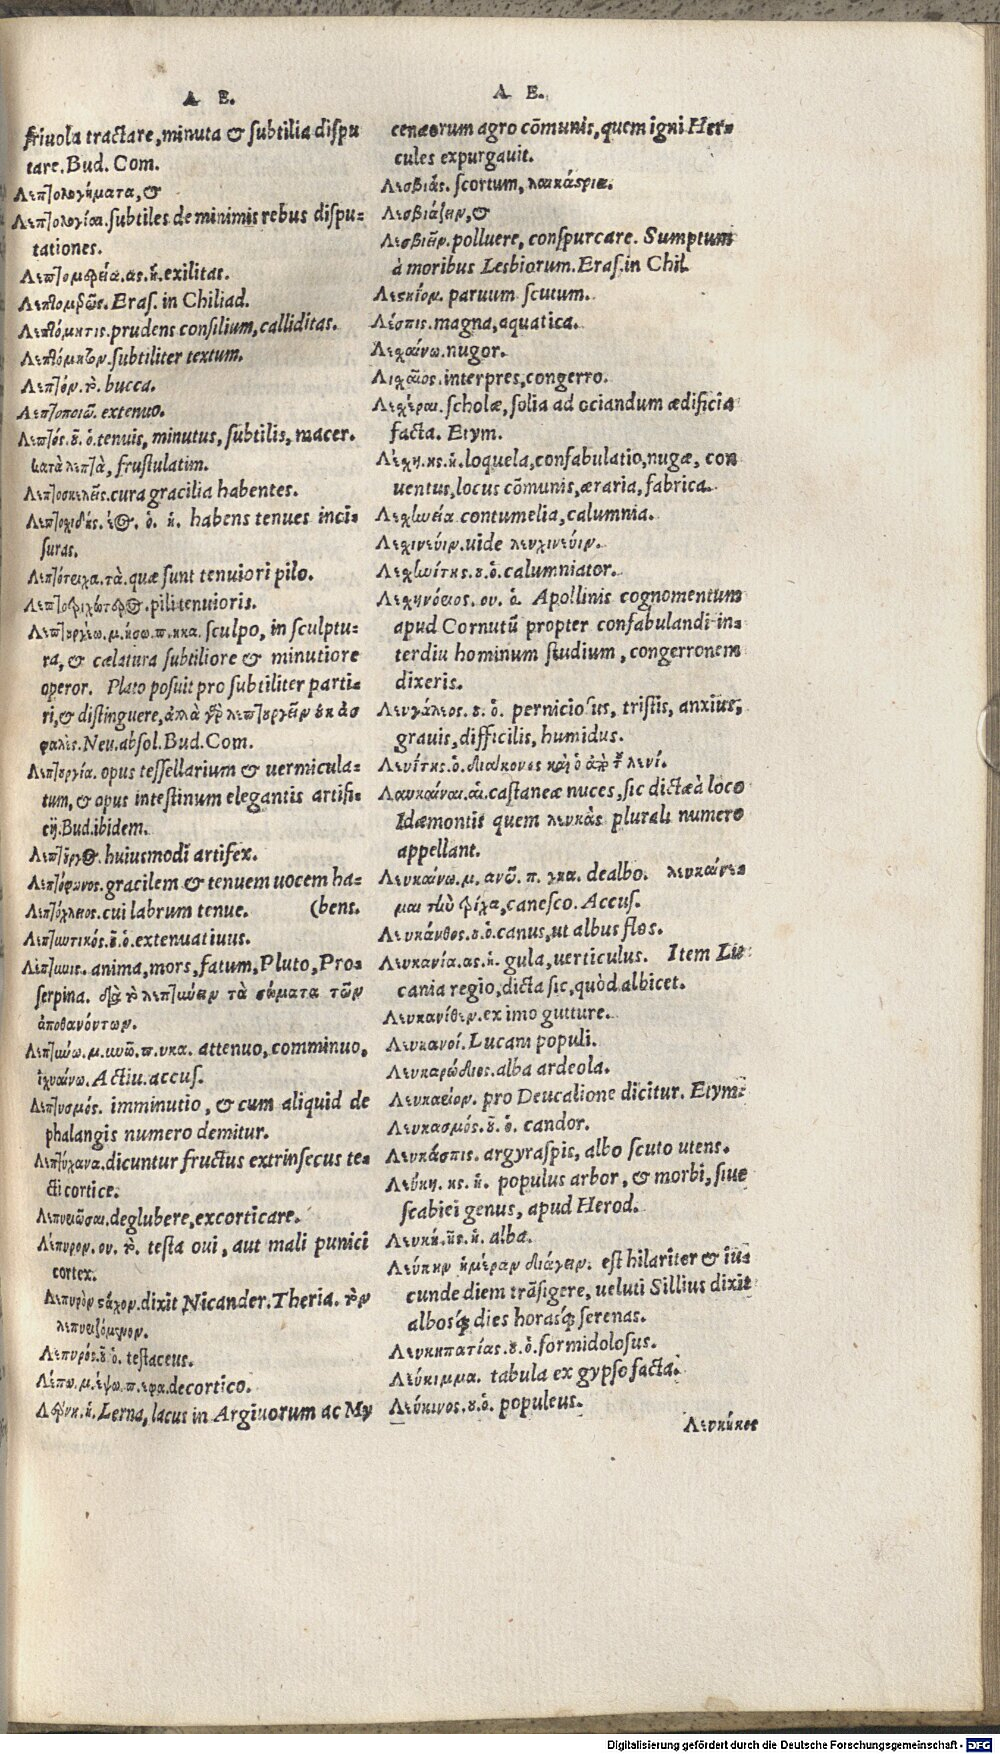 Λ Ε.
friuola tractare, minuta & subtilia dispu
tare. Bud. Com.
Λεπτολογήματα, &
Λεπτολογίαι. subtiles de minimis rebus dispu-
tationes.
Λεπτομερεία. ας. ἡ. exilitas.
Λεπτομερῶς. Eras. in Chiliad.
Λεπτόμητις. prudens consilium, calliditas.
Λεπτόμιτον. subtiliter textum.
Λεπτόν. τὸ. bucca.
Λεπτοποιῶ. extenuo.
Λεπτός. οῦ. ὁ. tenuis, minutus, subtilis, macer.
κατὰ λεπτὰ, frustulatim.
Λεπτοσκελεῖς. cura gracilia habentes.
Λεπτοσχιδής. έος. ὁ. ἡ. habens tenues inci-
suras.
Λεπτότριχα. τὰ. quæ sunt tenuiori pilo.
Λεπτοτριχώτερος. pili tenuioris.
Λεπτουργέω. μ. ήσω. π. ηκα. sculpo, in sculptu-
ra, & cælatura subtiliore & minutiore
operor. Plato posuit pro subtiliter parti-
ri, & distinguere, ἀλλὰ γὰρ λεπτουργεῖν οὐκ ἀσ
φαλὲς. Neu. absol. Bud. Com.
Λεπτουργία. opus tessellarium & uermicula-
tum, & opus intestinum elegantis artifi-
cij. Bud. ibidem.
Λεπτουργος. huiusmodi artifex.
Λεπτόφωνος. gracilem & tenuem uocem ha-
Λεπτόχειλος. cui labrum tenue. (bens.
Λεπτυντικός. οῦ. ὁ. extenuatiuus.
Λέπτυνις. anima, mors, fatum, Pluto, Pro-
serpina. διὰ τὸ λεπτύνειν τὰ σώματα τῶν
ἀποθανόντων.
Λεπτύνω. μ. υνῶ. π. υκα. attenuo, comminuo,
ἰχναίνω. Actiu. accus.
Λεπτυσμός. imminutio, & cum aliquid de
phalangis numero demitur.
Λεπτύχανα. dicuntur fructus extrinsecus te-
cti cortice.
Λεπυριῶσαι. deglubere, excorticare.
Λέπυρον. ου. τὸ. testa oui, aut mali punici
cortex.
Λεπυρὸν στάχυν. dixit Nicander. Theria. τὸν
λεπυριζόμενον.
Λεπυρός. οῦ. ὁ. testaceus.
Λέπω. μ. έψω. π. εφα. decortico.
Λέρνη. ἡ. Lerna, lacus in Argiuorum ac My
Λ Ε.
cenæorum agro cōmunis, quem igni Her-
cules expurgauit.
Λεσβιάς. scortum, λαικάστρια.
Λεσβιάζειν, &
Λεσβιεῖν. polluere, conspurcare. Sumptum
à moribus Lesbiorum. Eras. in Chil.
Λεσκίον. paruum scutum.
Λέσπις. magna, aquatica.
Λεσχαίνω. nugor.
Λεσχαῖος. interpres, congerro.
Λεσχέραι. scholæ, solia ad ociandum ædificia
facta. Etym.
Λέσχη. ης. ἡ. loquela, confabulatio, nugæ, con
uentus, locus cōmunis, æraria, fabrica.
Λεσχηνεία contumelia, calumnia.
Λεσχινεύειν. uide λευχινεύειν.
Λεσχηνίτης. ου. ὁ. calumniator.
Λεσχηνόριος. ου. ὁ. Apollinis cognomentum
apud Cornutū propter confabulandi in-
terdiu hominum studium, congerronem
dixeris.
Λευγάλεος. ου. ὁ. perniciosus, tristis, anxius,
grauis, difficilis, humidus.
Λευίτης. ὁ. διάκονος καὶ ὁ ἀπὸ τοῦ λευί.
Λαυκαῖναι. αἱ. castaneæ nuces, sic dictæ à loco
Idæmontis quem λευκὰς plurali numero
appellant.
Λευκαίνω. μ. ανῶ. π. γκα. dealbo. λευκαίνο
μαι τὴν τρίχα, canesco. Accus.
Λευκάνθος. ου. ὁ. canus, ut albus flos.
Λευκανία. ας. ἡ. gula, uerticulus. Item Lu-
cania regio, dicta sic, quòd albicet.
Λευκανίθεν. ex imo gutture.
Λευκανοί. Lucani populi.
Λευκαρώδιος. alba ardeola.
Λευκαρίον. pro Deucalione dicitur. Etym.
Λευκασμός. οῦ. ὁ. candor.
Λευκάσπις. argyraspis, albo scuto utens.
Λεύκη. ης. ἡ. populus arbor, & morbi, siue
scabiei genus, apud Herod.
Λευκή. ῆς. ἡ. alba.
Λεύκην ἡμέραν διάγειν. est hilariter & iu-
cunde diem trāsigere, ueluti Sillius dixit
albosq́; dies horasq́; serenas.
Λευκηπατίας. ου. ὁ. formidolosus.
Λεύκιμμα. tabula ex gypso facta.
Λεύκινος. ου. ὁ. populeus.
Λευκίκος
Digitalisierung gefördert durch die Deutsche Forschungsgemeinschaft - DFG